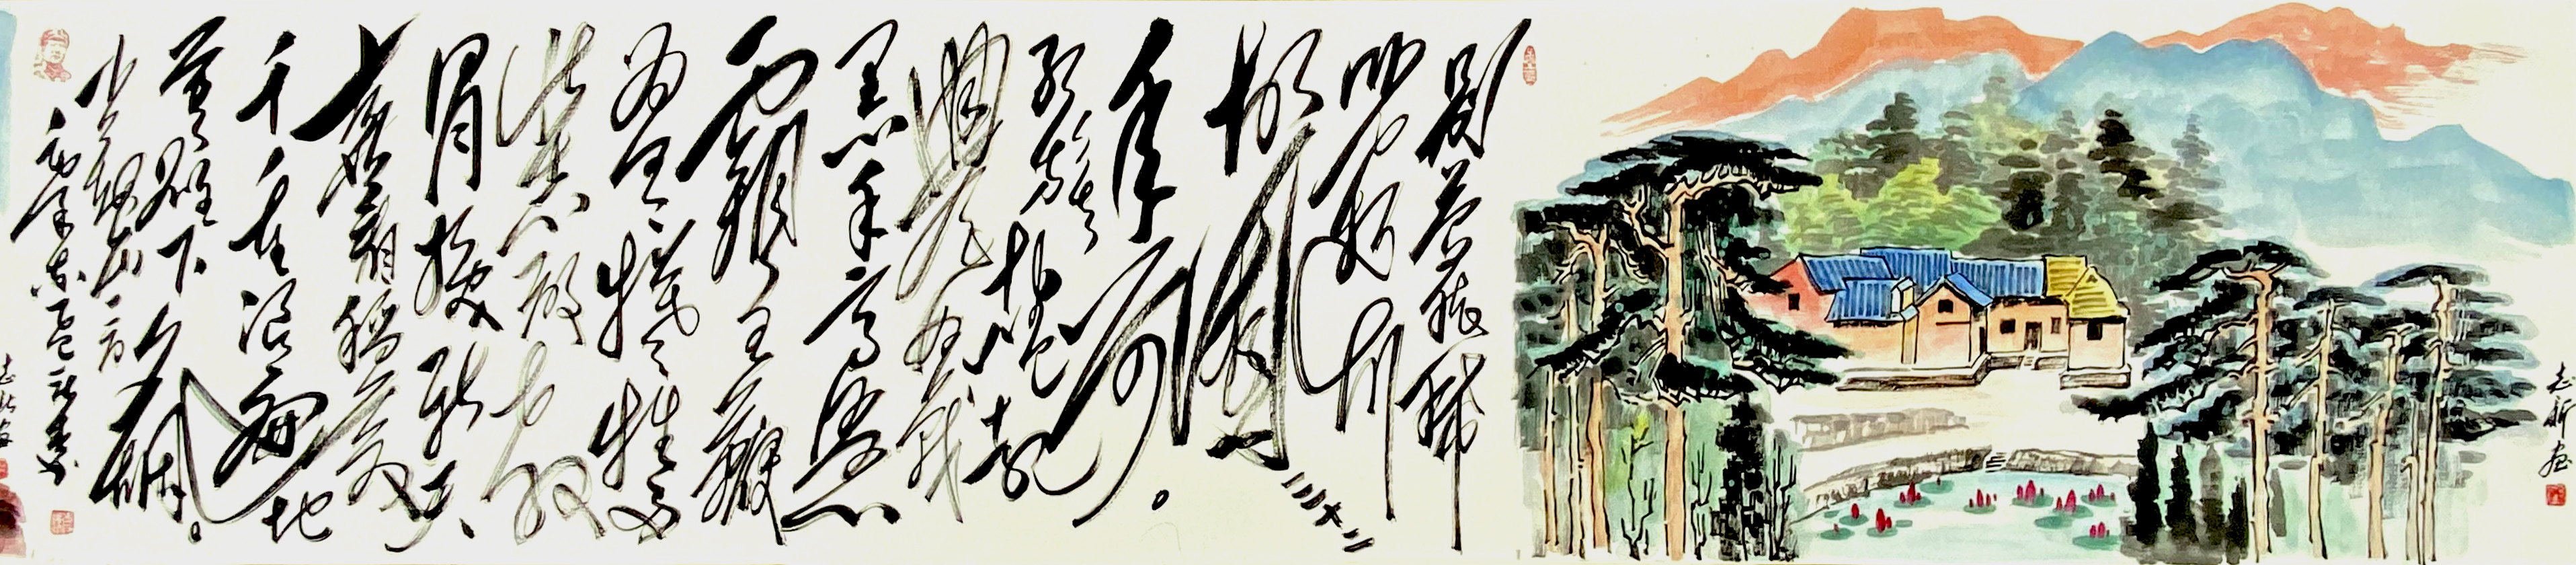 志新画
别梦依稀
咒逝川
故园三十二
年前。
红旗卷起
农奴戟
黑手高悬
霸主鞭
为有牺牲多
壮志敢教
日月换新天
喜看稻菽
千重浪遍地
英雄下夕烟。
韶山
毛泽东